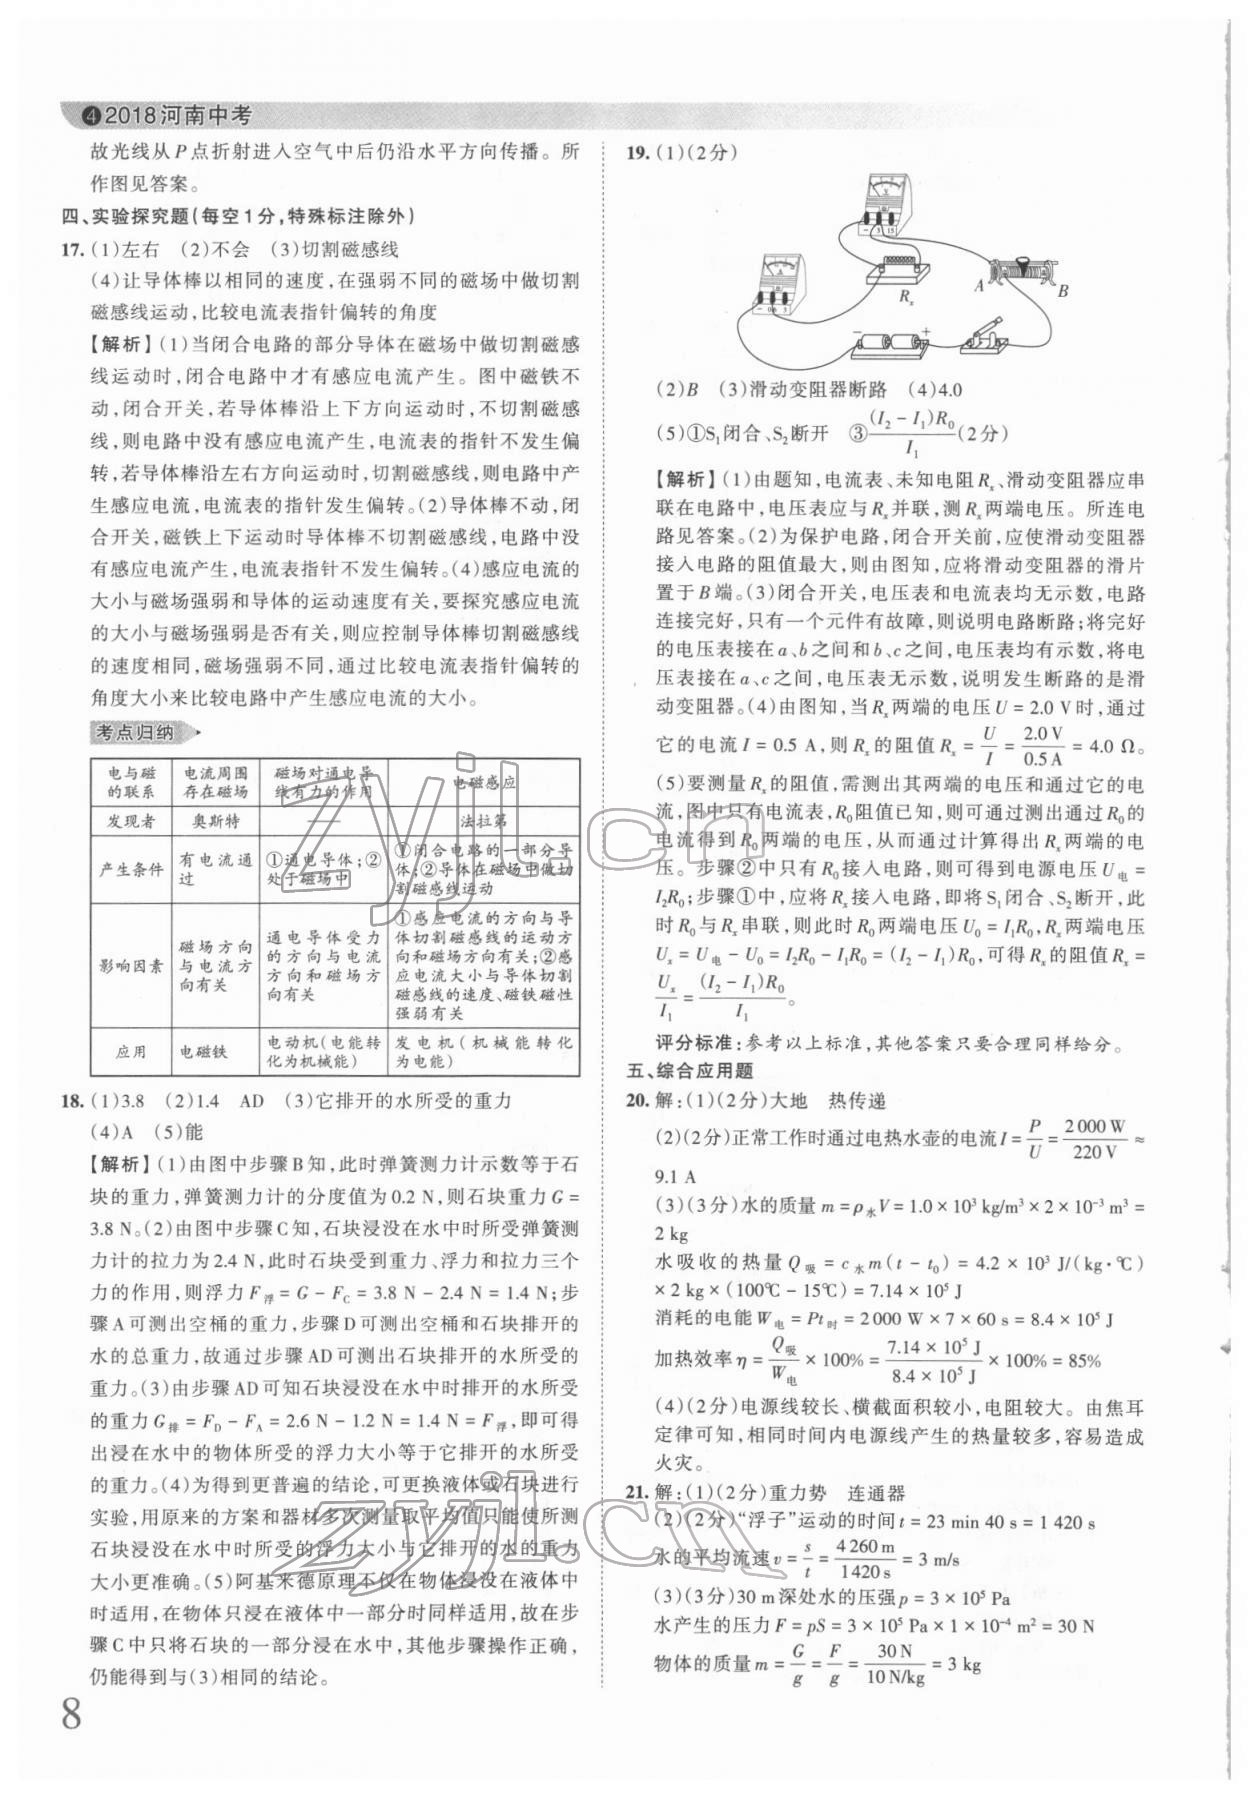 ❹2018河南中考
故光线从P点折射进入空气中后仍沿水平方向传播。所
作图见答案。
四、实验探究题(每空1分,特殊标注除外)
17. (1)左右 (2)不会 (3)切割磁感线
(4)让导体棒以相同的速度,在强弱不同的磁场中做切割
磁感线运动,比较电流表指针偏转的角度
【解析】(1)当闭合电路的部分导体在磁场中做切割磁感
线运动时,闭合电路中才有感应电流产生。图中磁铁不
动,闭合开关,若导体棒沿上下方向运动时,不切割磁感
线,则电路中没有感应电流产生,电流表的指针不发生偏
转,若导体棒沿左右方向运动时,切割磁感线,则电路中产
生感应电流,电流表的指针发生偏转。(2)导体棒不动,闭
合开关,磁铁上下运动时导体棒不切割磁感线,电路中没
有感应电流产生,电流表指针不发生偏转。(4)感应电流的
大小与磁场强弱和导体的运动速度有关,要探究感应电流
的大小与磁场强弱是否有关,则应控制导体棒切割磁感线
的速度相同,磁场强弱不同,通过比较电流表指针偏转的
角度大小来比较电路中产生感应电流的大小。
考点归纳
电与磁的联系 电流周围存在磁场 磁场对通电导线有力的作用 电磁感应
发现者 奥斯特 —— 法拉第
产生条件 有电流通过 ①通电导体;②处于磁场中 ①闭合电路的一部分导体;②导体在磁场中做切割磁感线运动
影响因素 磁场方向与电流方向有关 通电导体受力的方向与电流方向和磁场方向有关 ①感应电流的方向与导体切割磁感线的运动方向和磁场方向有关;②感应电流大小与导体切割磁感线的速度、磁铁磁性强弱有关
应用 电磁铁 电动机(电能转化为机械能) 发电机(机械能转化为电能)
18. (1)3.8 (2)1.4 AD (3)它排开的水所受的重力
(4)A (5)能
【解析】(1)由图中步骤B知,此时弹簧测力计示数等于石
块的重力,弹簧测力计的分度值为0.2 N,则石块重力G=
3.8 N。(2)由图中步骤C知,石块浸没在水中时所受弹簧测
力计的拉力为2.4 N,此时石块受到重力、浮力和拉力三个
力的作用,则浮力F浮=G-FC=3.8 N-2.4 N=1.4 N;步
骤A可测出空桶的重力,步骤D可测出空桶和石块排开的
水的总重力,故通过步骤AD可测出石块排开的水所受的
重力。(3)由步骤AD可知石块浸没在水中时排开的水所受
的重力G排=FD-FA=2.6 N-1.2 N=1.4 N=F浮,即可得
出浸在水中的物体所受的浮力大小等于它排开的水所受
的重力。(4)为得到更普遍的结论,可更换液体或石块进行
实验,用原来的方案和器材多次测量取平均值只能使所测
石块浸没在水中时所受的浮力大小与它排开的水的重力
大小更准确。(5)阿基米德原理不仅在物体浸没在液体中
时适用,在物体只浸在液体中一部分时同样适用,故在步
骤C中只将石块的一部分浸在水中,其他步骤操作正确,
仍能得到与(3)相同的结论。
8
19. (1)(2分)
V
- 3 15
A
- 0.6 3
Rx
A B
- +
(2)B (3)滑动变阻器断路 (4)4.0
(5)①S1闭合、S2断开 ③(I2-I1)R0/I1(2分)
【解析】(1)由题知,电流表、未知电阻Rx、滑动变阻器应串
联在电路中,电压表应与Rx并联,测Rx两端电压。所连电
路见答案。(2)为保护电路,闭合开关前,应使滑动变阻器
接入电路的阻值最大,则由图知,应将滑动变阻器的滑片
置于B端。(3)闭合开关,电压表和电流表均无示数,电路
连接完好,只有一个元件有故障,则说明电路断路;将完好
的电压表接在a、b之间和b、c之间,电压表均有示数,将电
压表接在a、c之间,电压表无示数,说明发生断路的是滑
动变阻器。(4)由图知,当Rx两端的电压U=2.0 V时,通过
它的电流I=0.5 A,则Rx的阻值Rx=U/I=2.0 V/0.5 A=4.0 Ω。
(5)要测量Rx的阻值,需测出其两端的电压和通过它的电
流,图中只有电流表,R0阻值已知,则可通过测出通过R0的
电流得到R0两端的电压,从而通过计算得出Rx两端的电
压。步骤②中只有R0接入电路,则可得到电源电压U电=
I2R0;步骤①中,应将Rx接入电路,即将S1闭合、S2断开,此
时R0与Rx串联,则此时R0两端电压U0=I1R0,Rx两端电压
Ux=U电-U0=I2R0-I1R0=(I2-I1)R0,可得Rx的阻值Rx=
Ux/I1=(I2-I1)R0/I1。
评分标准:参考以上标准,其他答案只要合理同样给分。
五、综合应用题
20. 解:(1)(2分)大地 热传递
(2)(2分)正常工作时通过电热水壶的电流I=P/U=2 000 W/220 V≈
9.1 A
(3)(3分)水的质量m=ρ水V=1.0×10³ kg/m³×2×10⁻³ m³=
2 kg
水吸收的热量Q吸=c水m(t-t0)=4.2×10³ J/(kg·℃)
×2 kg×(100℃-15℃)=7.14×10⁵ J
消耗的电能W电=Pt时=2 000 W×7×60 s=8.4×10⁵ J
加热效率η=Q吸/W电×100%=7.14×10⁵ J/8.4×10⁵ J×100%=85%
(4)(2分)电源线较长、横截面积较小,电阻较大。由焦耳
定律可知,相同时间内电源线产生的热量较多,容易造成
火灾。
21. 解:(1)(2分)重力势 连通器
(2)(2分)“浮子”运动的时间t=23 min 40 s=1 420 s
水的平均流速v=s/t=4 260 m/1 420 s=3 m/s
(3)(3分)30 m深处水的压强p=3×10⁵ Pa
水产生的压力F=pS=3×10⁵ Pa×1×10⁻⁴ m²=30 N
物体的质量m=G/g=F/g=30 N/10 N/kg=3 kg
zyjl.cn
zyjl.cn